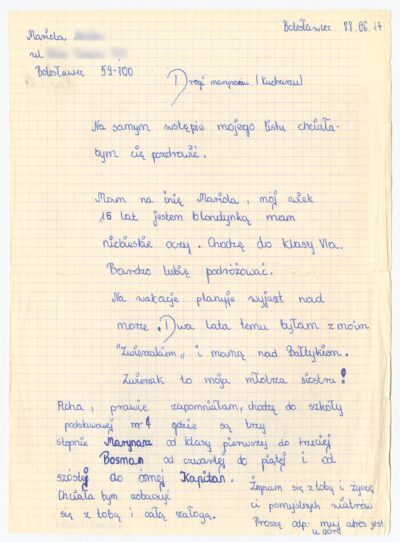 Bolesławiec 88.06.17
Mariola
ul
Bolesławiec 59-700
Drogi marynarzu! (Kucharzu)
Na samym wstępie mojego listu chciała-
bym cię pozdrowić.
Mam na imię Mariola, mój wiek
15 lat jestem blondynką mam
niebieskie oczy. Chodzę do klasy VIa.
Bardzo lubię podróżować.
Na wakacje planuję wyjazt nad
morze. Dwa lata temu byłam z moim
"Zwierzakiem" i mamą nad Bałtykiem.
Zwierzak to moja młotrza siostra!
Acha, prawie zapomniałam, chodzę do szkoły
podstawowej nr 4 gdzie są trzy
stopnie Marynarz od klasy pierwszej do trzeciej
Bosman od czwartej do piątej i od
szóstej do ósmej Kapitan.
Chciała bym zobaczyć
się z tobą i całą załogą.
Żegnam się z tobą i życzę
ci pomyślnych wiatrów
Proszę odp. mój adres jest
u góry